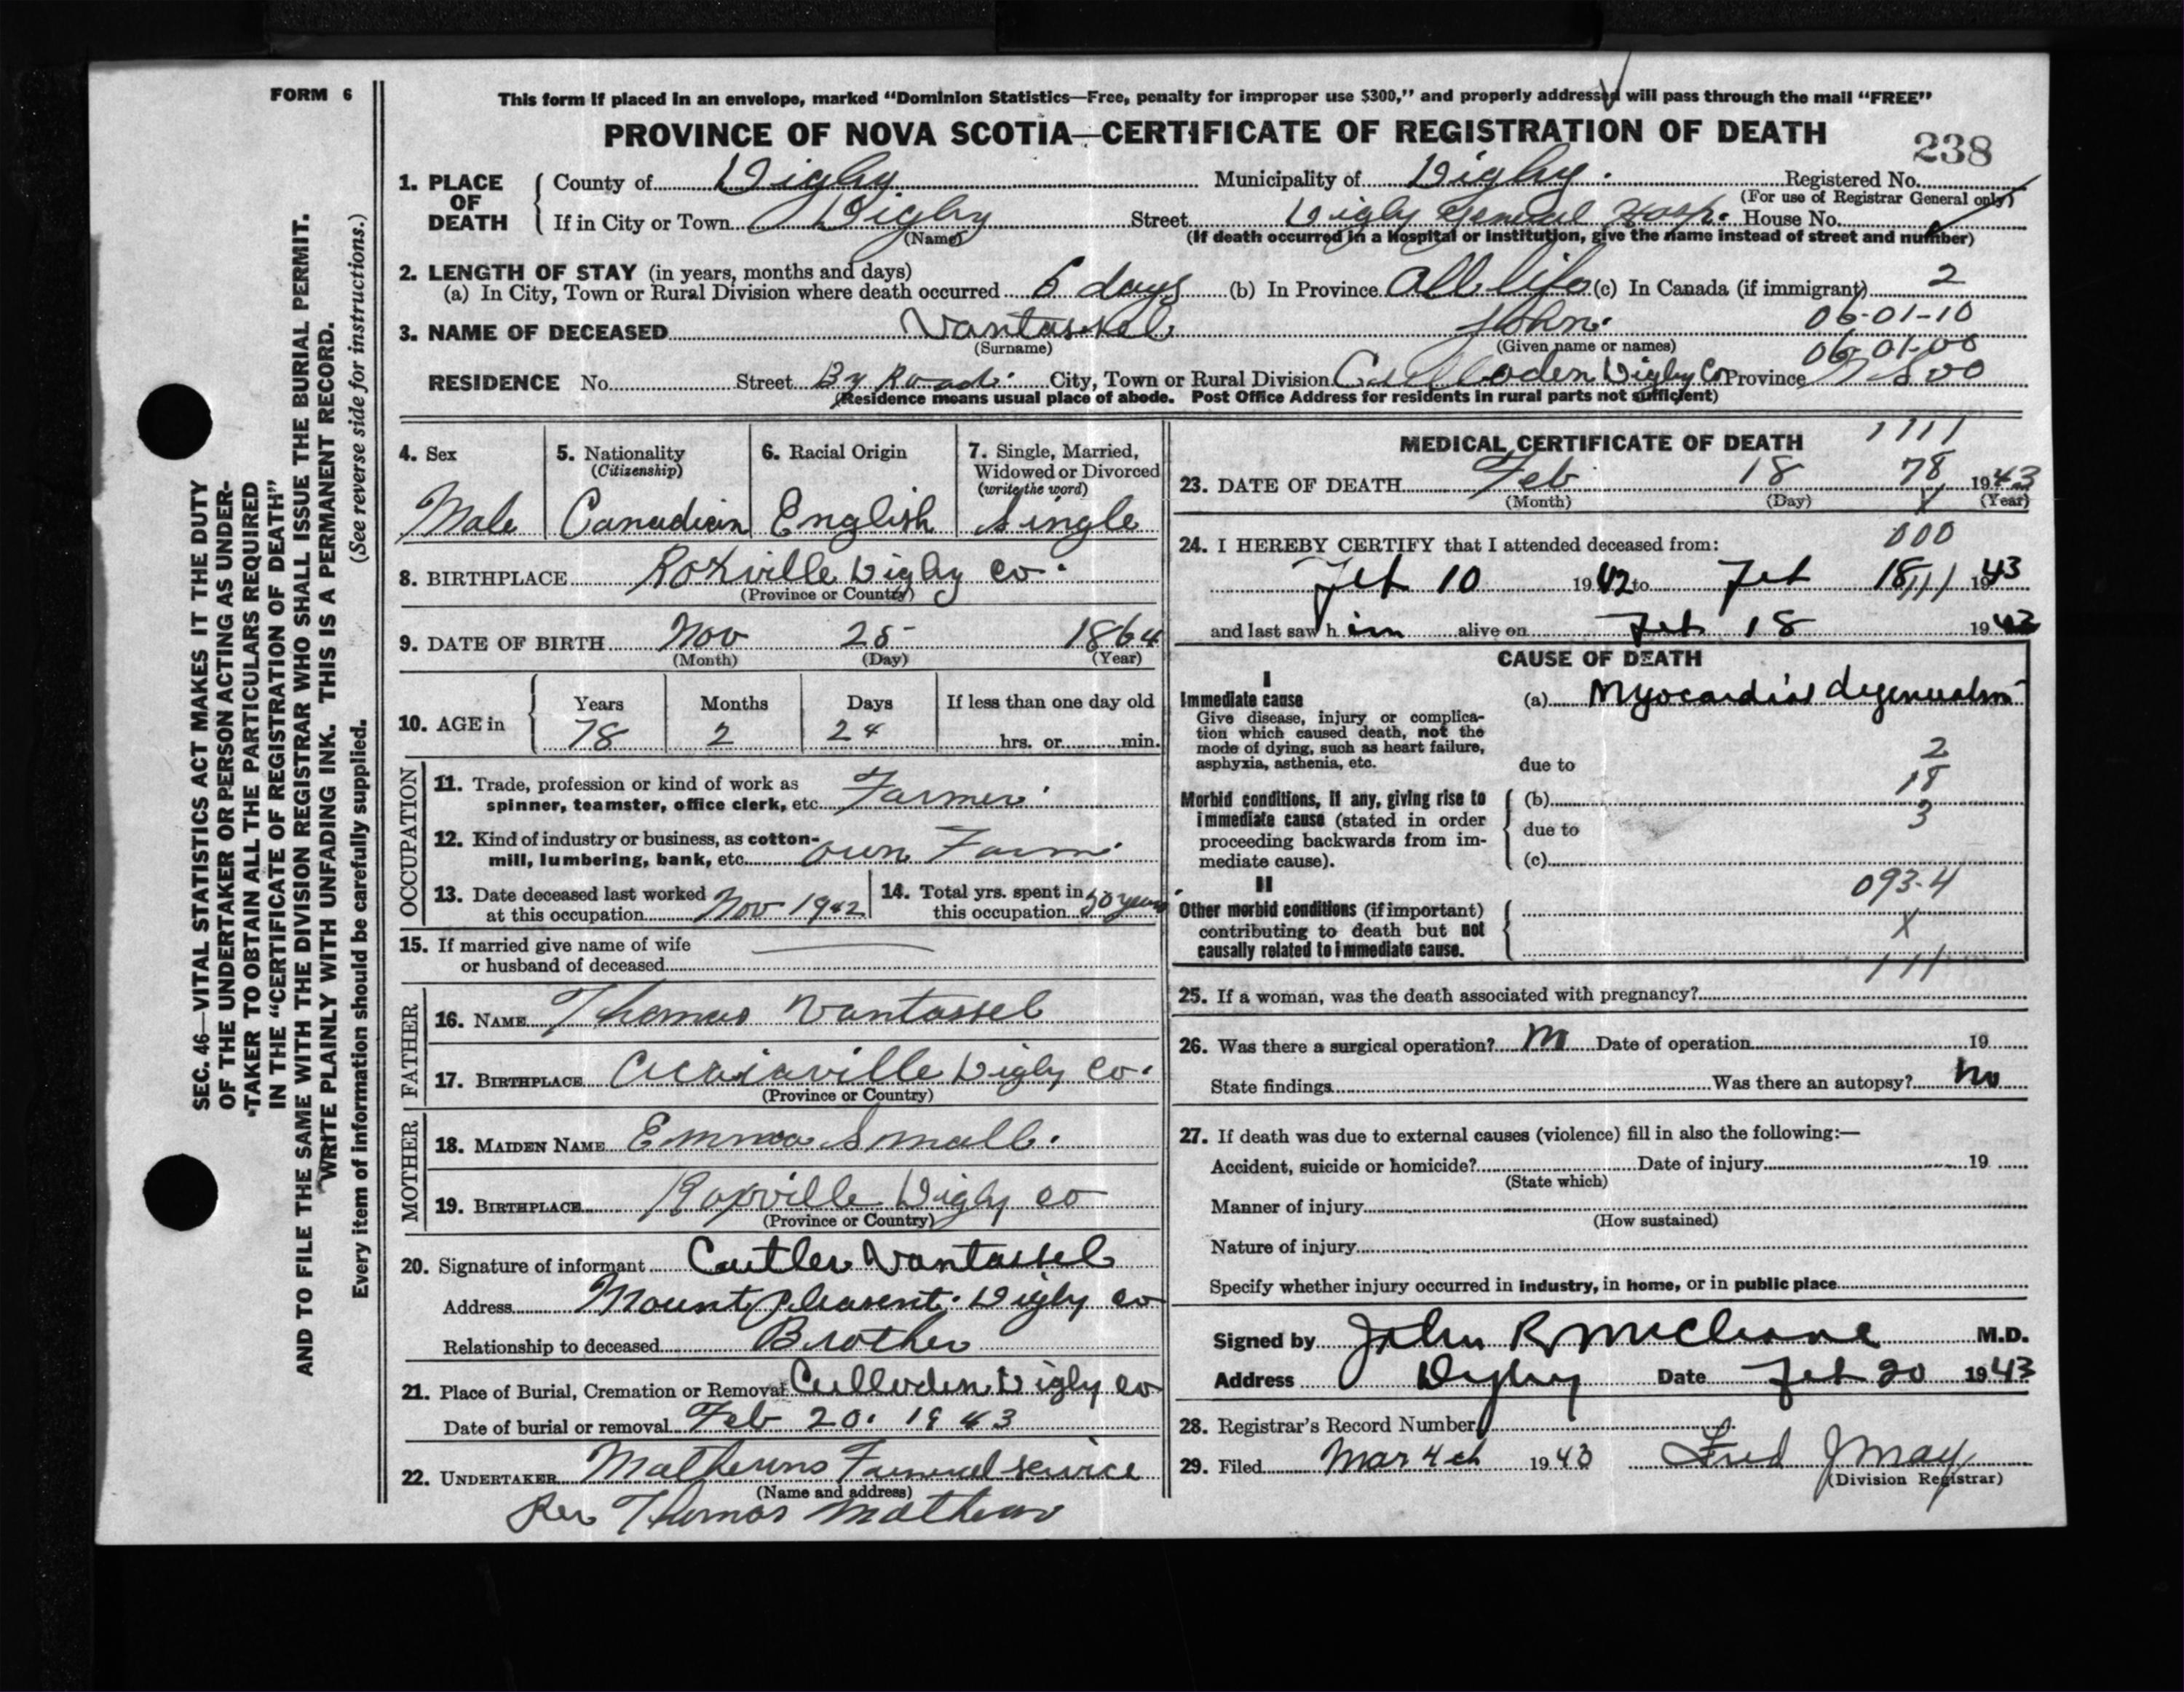 FORM 6
SEC. 46—VITAL STATISTICS ACT MAKES IT THE DUTY
OF THE UNDERTAKER OR PERSON ACTING AS UNDER-
TAKER TO OBTAIN ALL THE PARTICULARS REQUIRED
IN THE "CERTIFICATE OF REGISTRATION OF DEATH"
AND TO FILE THE SAME WITH THE DIVISION REGISTRAR WHO SHALL ISSUE THE BURIAL PERMIT.
WRITE PLAINLY WITH UNFADING INK. THIS IS A PERMANENT RECORD.
Every item of information should be carefully supplied. (See reverse side for instructions.)
This form if placed in an envelope, marked "Dominion Statistics—Free, penalty for improper use $300," and properly addressed will pass through the mail "FREE"
PROVINCE OF NOVA SCOTIA—CERTIFICATE OF REGISTRATION OF DEATH
238
1. PLACE OF DEATH
County of Digby Municipality of Digby. Registered No.
(For use of Registrar General only)
If in City or Town Digby Street Digby General Hosp. House No.
(Name) (If death occurred in a Hospital or Institution, give the name instead of street and number)
2. LENGTH OF STAY (in years, months and days)
(a) In City, Town or Rural Division where death occurred 6 days (b) In Province All life (c) In Canada (if immigrant) 2
06-01-10
3. NAME OF DECEASED Vantassel John.
(Surname) (Given name or names)
06-01-00
RESIDENCE No. Street By Road. City, Town or Rural Division Culloden Digby Co Province N S 00
(Residence means usual place of abode. Post Office Address for residents in rural parts not sufficient)
4. Sex 5. Nationality 6. Racial Origin 7. Single, Married,
(Citizenship) Widowed or Divorced
(write the word)
Male Canadian English Single
8. BIRTHPLACE Roxville Digby Co.
(Province or Country)
9. DATE OF BIRTH Nov 25 1864
(Month) (Day) (Year)
10. AGE in Years Months Days If less than one day old
78 2 24 hrs. or min.
OCCUPATION
11. Trade, profession or kind of work as
spinner, teamster, office clerk, etc. Farmer
12. Kind of industry or business, as cotton-
mill, lumbering, bank, etc. own Farm
13. Date deceased last worked
at this occupation Nov 1942
14. Total yrs. spent in
this occupation 50 years
15. If married give name of wife
or husband of deceased
FATHER
16. NAME Thomas Vantassel
17. BIRTHPLACE Acaciaville Digby Co.
(Province or Country)
MOTHER
18. MAIDEN NAME Emma Small.
19. BIRTHPLACE Roxville Digby Co
(Province or Country)
20. Signature of informant Cutler Vantassel
Address Mount Pleasent. Digby Co
Relationship to deceased Brother
21. Place of Burial, Cremation or Removal Culloden Digby Co
Date of burial or removal Feb 20. 1943
22. UNDERTAKER Funeral Service
(Name and address)
Per Thomas
MEDICAL CERTIFICATE OF DEATH 1111
23. DATE OF DEATH Feb 18 78 1943
(Month) (Day) X (Year)
24. I HEREBY CERTIFY that I attended deceased from: 000
Feb 10 1942 to Feb 18 111 1943
and last saw h im alive on Feb 18 1943
CAUSE OF DEATH
I
Immediate cause (a) Myocardial degeneration
Give disease, injury or complica-
tion which caused death, not the
mode of dying, such as heart failure,
asphyxia, asthenia, etc. due to
2
18
3
Morbid conditions, if any, giving rise to (b)
immediate cause (stated in order due to
proceeding backwards from im-
mediate cause). (c)
II 093-4
Other morbid conditions (if important)
contributing to death but not X
causally related to immediate cause.
111
25. If a woman, was the death associated with pregnancy?
26. Was there a surgical operation? Date of operation 19
State findings Was there an autopsy? No
27. If death was due to external causes (violence) fill in also the following:—
Accident, suicide or homicide? Date of injury 19
(State which)
Manner of injury
(How sustained)
Nature of injury
Specify whether injury occurred in industry, in home, or in public place
Signed by John R McCleave M.D.
Address Digby Date Feb 20 1943
28. Registrar's Record Number
29. Filed Mar 4th 1943 Fred J May
(Division Registrar)